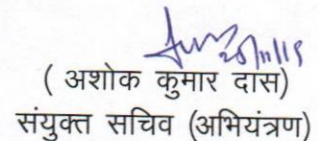 20/11/19
( अशोक कुमार दास)
संयुक्त सचिव (अभियंत्रण)